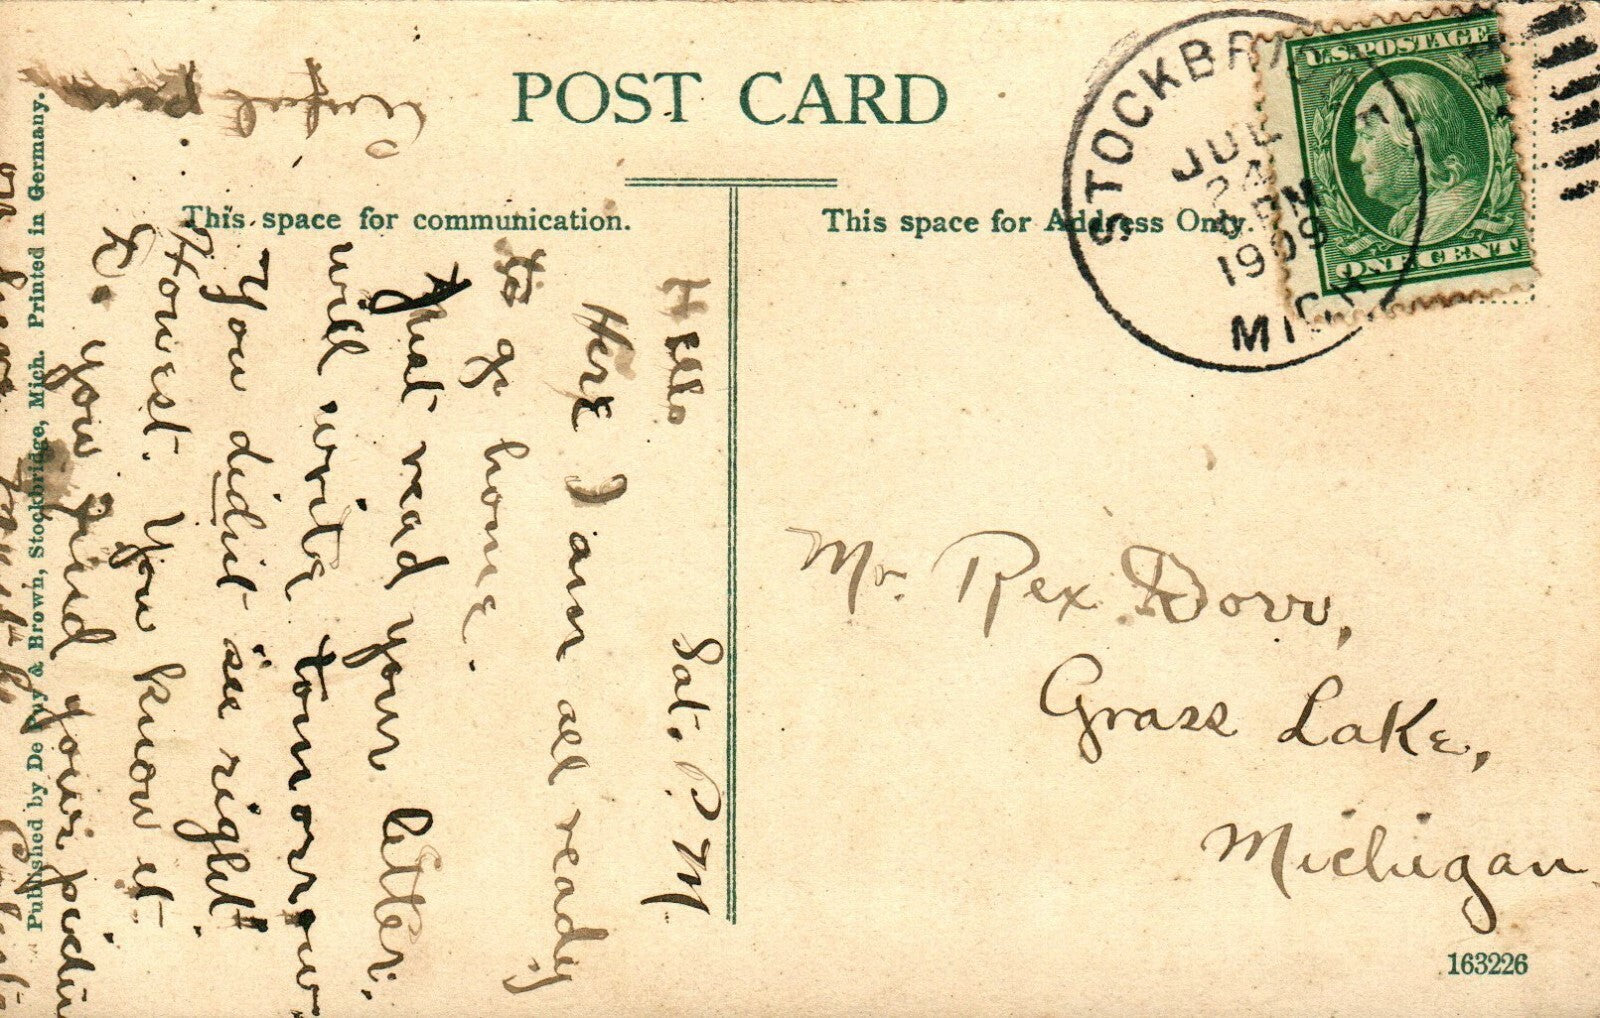 POST CARD
This space for communication.
This space for Address Only.
STOCKBRIDGE
JUL
24
PM
1909
MICH.
U.S. POSTAGE
ONE CENT
Mr. Rex Dorr,
Grass Lake,
Michigan
163226
Hello Sat. P.M
Here I am all ready
to go home.
Just read your letter.
will write tomorrow
You didn't see right.
Honest. You know it.
D. you find your
Published by De Puy & Brown, Stockbridge, Mich. Printed in Germany.